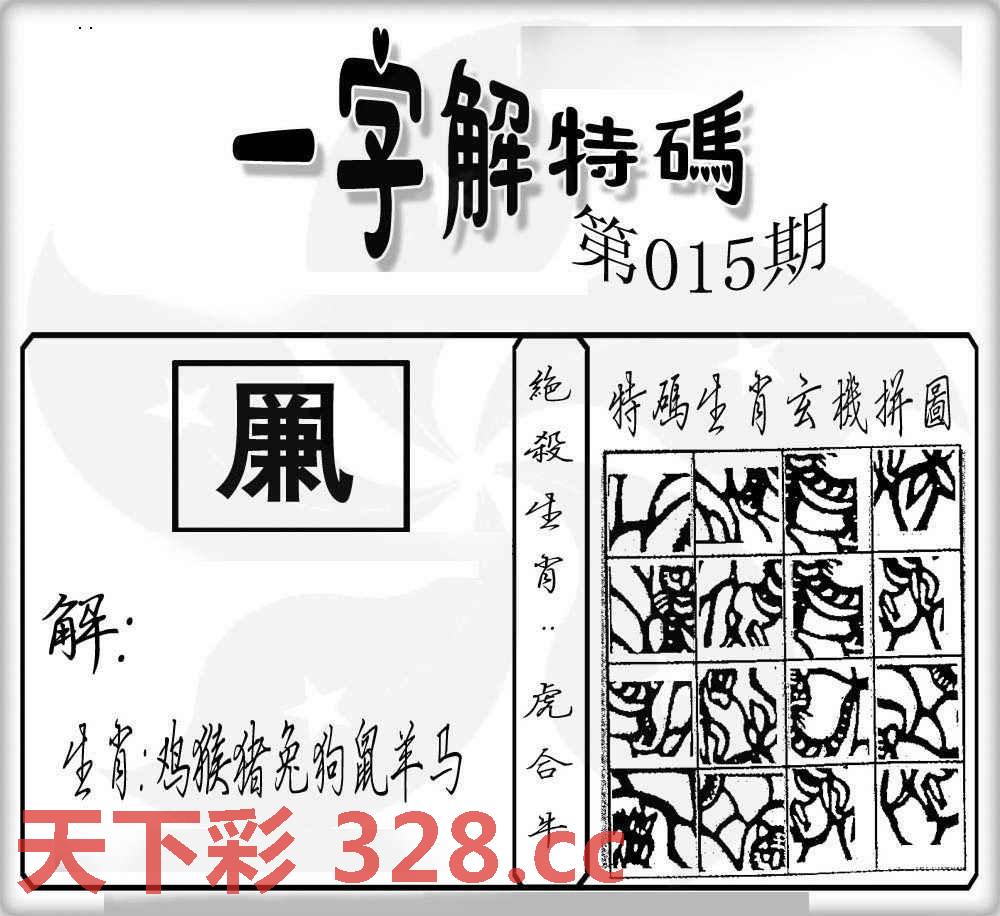 一字解特碼
第015期
凲
解:
生肖:鸡猴猪兔狗鼠羊马
絶殺生肖:虎合牛
特碼生肖玄機拼圖
天下彩 328.cc